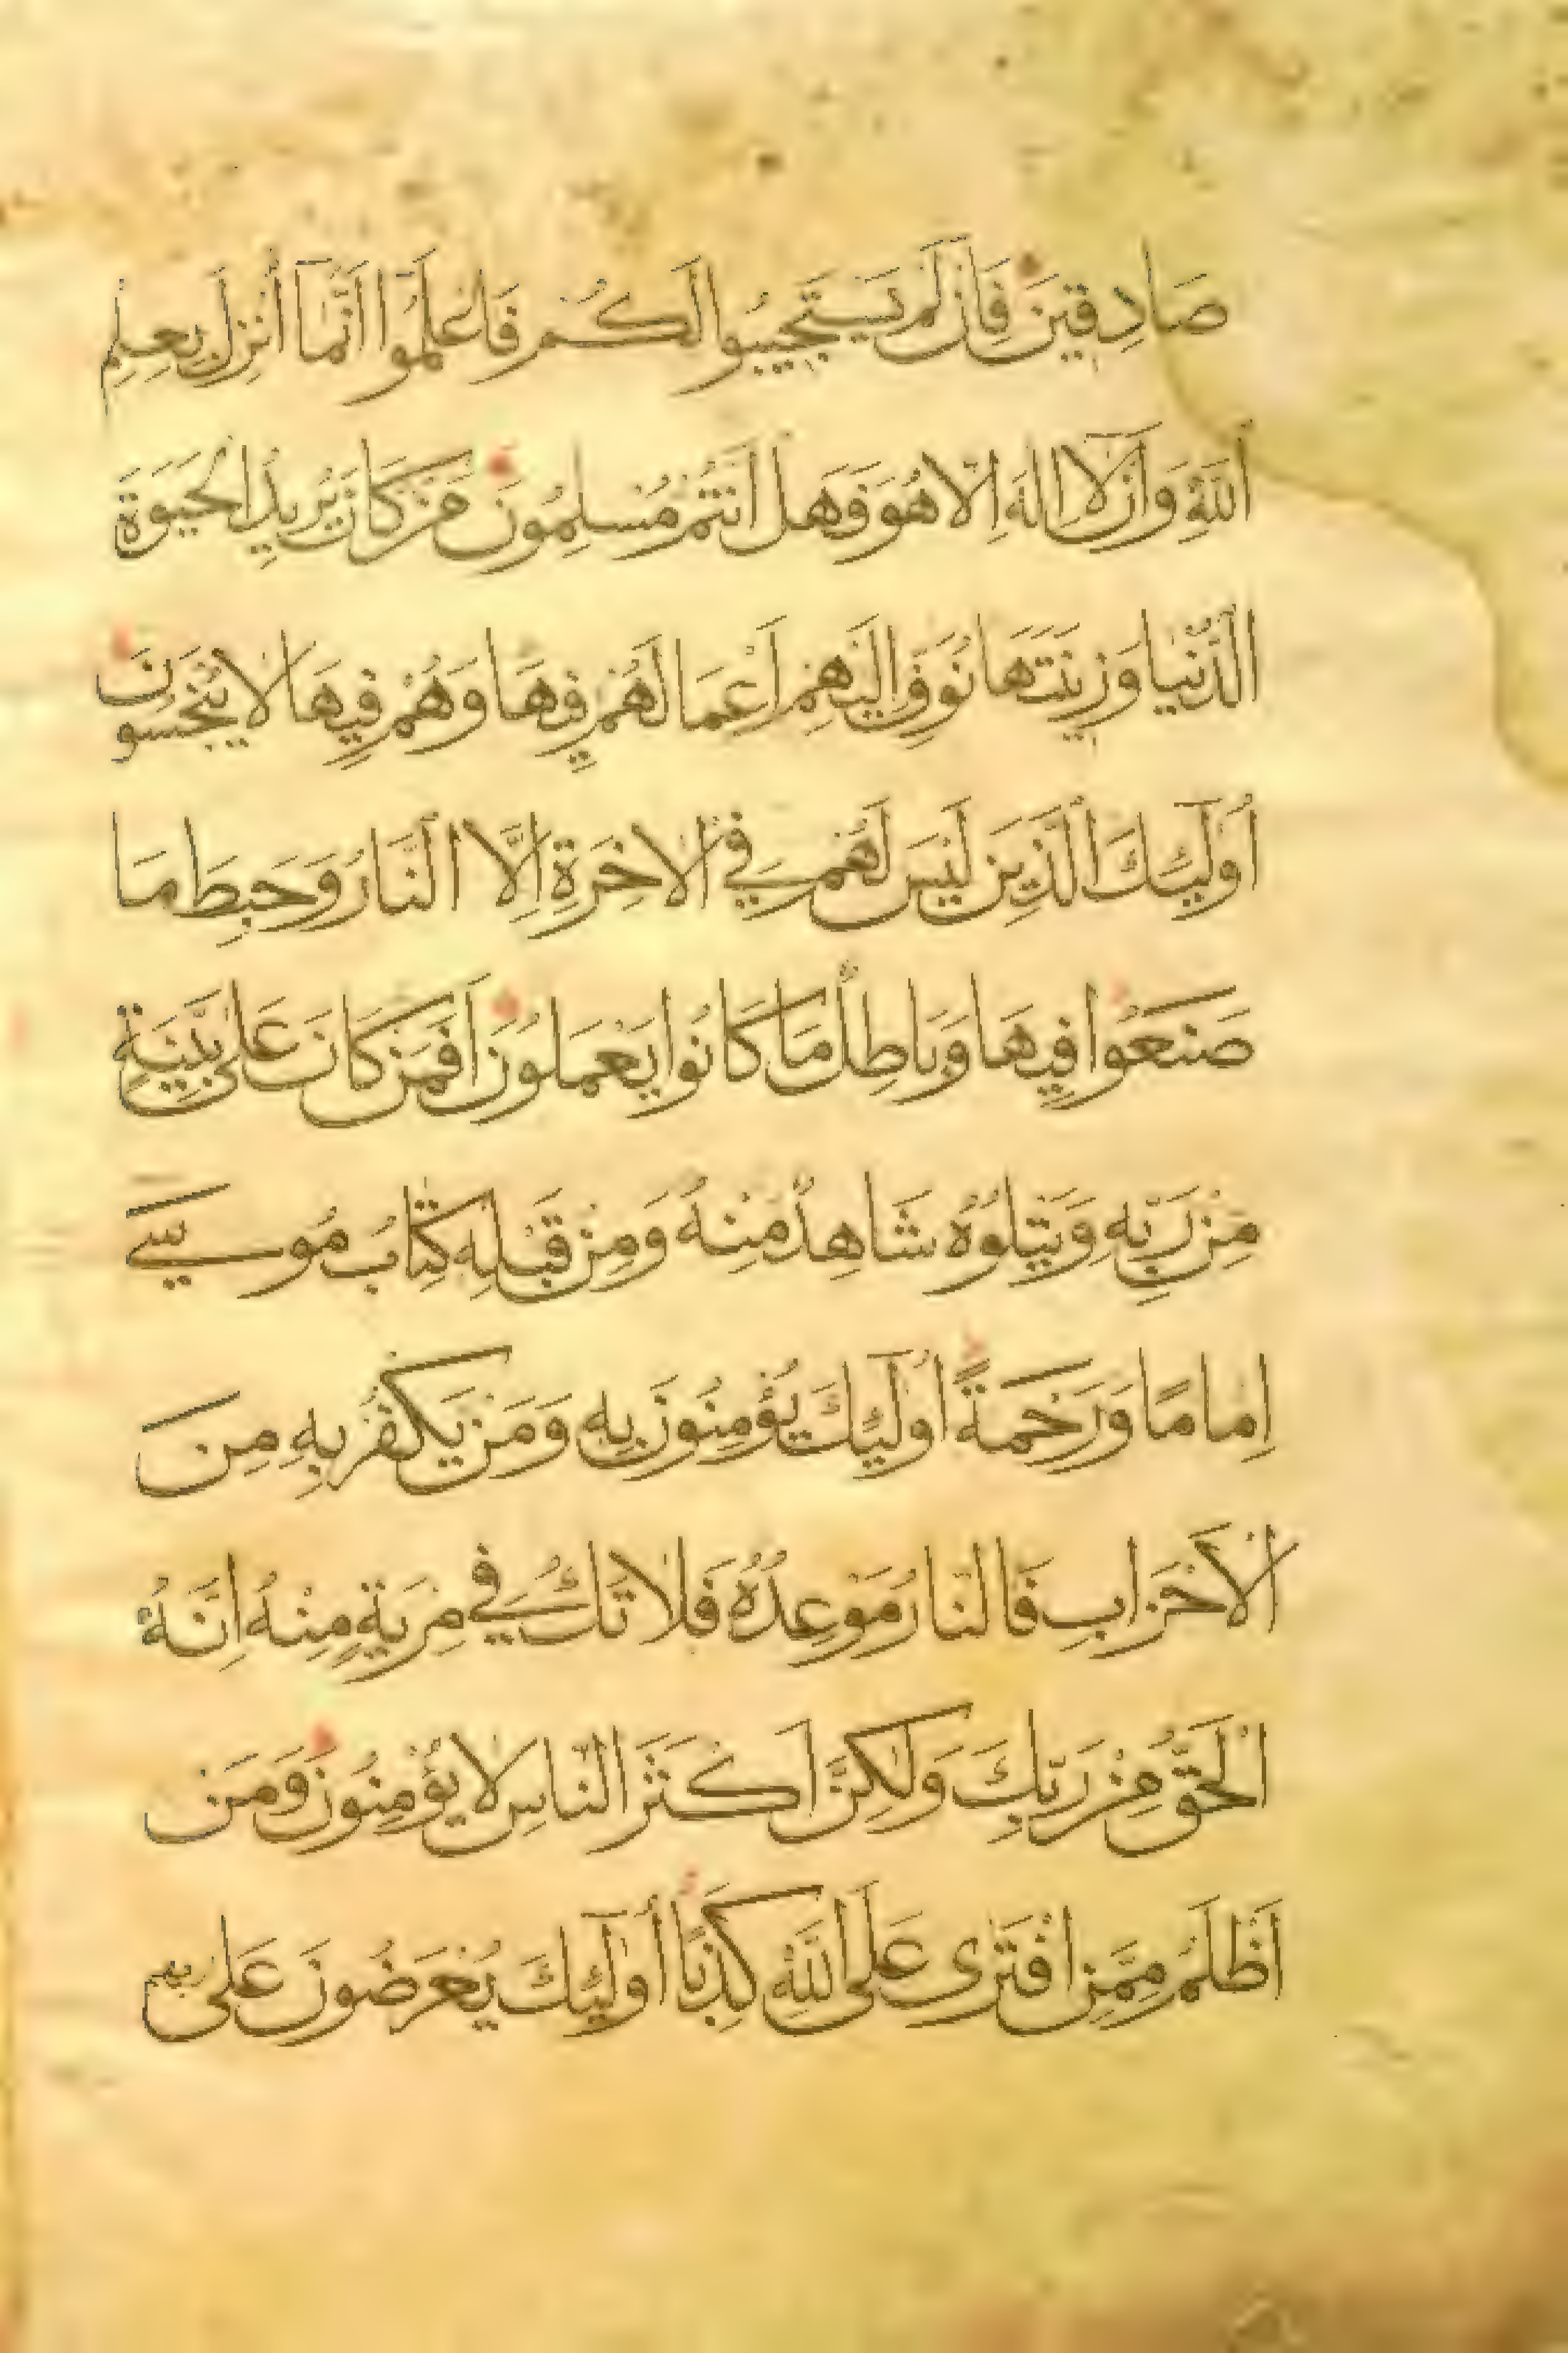 صَادِقِينَ فَاِنْ لَمْ يَسْتَجِيبُوا لَكُمْ فَاعْلَمُوا اَنَّمَا اُنْزِلَ بِعِلْمِ
اللّٰهِ وَاَنْ لَا اِلٰهَ اِلَّا هُوَ فَهَلْ اَنْتُمْ مُسْلِمُونَ مَنْ كَانَ يُرِيدُ الْحَيٰوةَ
الدُّنْيَا وَزِينَتَهَا نُوَفِّ اِلَيْهِمْ اَعْمَالَهُمْ فِيهَا وَهُمْ فِيهَا لَا يُبْخَسُونَ
اُولٰٓئِكَ الَّذِينَ لَيْسَ لَهُمْ فِي الْاٰخِرَةِ اِلَّا النَّارُ وَحَبِطَ مَا
صَنَعُوا فِيهَا وَبَاطِلٌ مَا كَانُوا يَعْمَلُونَ اَفَمَنْ كَانَ عَلٰى بَيِّنَةٍ
مِنْ رَبِّهِ وَيَتْلُوهُ شَاهِدٌ مِنْهُ وَمِنْ قَبْلِهِ كِتَابُ مُوسٰى
اِمَامًا وَرَحْمَةً اُولٰٓئِكَ يُؤْمِنُونَ بِهِ وَمَنْ يَكْفُرْ بِهِ مِنَ
الْاَحْزَابِ فَالنَّارُ مَوْعِدُهُ فَلَا تَكُ فِي مِرْيَةٍ مِنْهُ اِنَّهُ
الْحَقُّ مِنْ رَبِّكَ وَلٰكِنَّ اَكْثَرَ النَّاسِ لَا يُؤْمِنُونَ وَمَنْ
اَظْلَمُ مِمَّنِ افْتَرٰى عَلَى اللّٰهِ كَذِبًا اُولٰٓئِكَ يُعْرَضُونَ عَلٰى رَبِّهِمْ